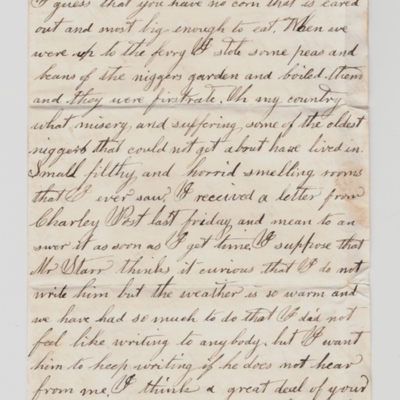 I guess that you have no corn that is eared
out and most big enough to eat. When we
were up to the ferry I stole some peas and
beans of the niggers garden and boiled them
and they were firstrate. Oh my country
what misery, and suffering, some of the oldest
niggers that could not get about have lived in.
Small, filthy, and horrid smelling rooms
that I ever saw. I received a letter from
Charley Post last friday, and mean to an
swer it as soon as I got time. I suppose that
Mr Starr thinks it curious that I do not
write him but the weather is so warm and
we have had so much to do that I did not
feel like writing to any body, but I want
him to keep writing if he does not hear
from me. I think a great deal of your